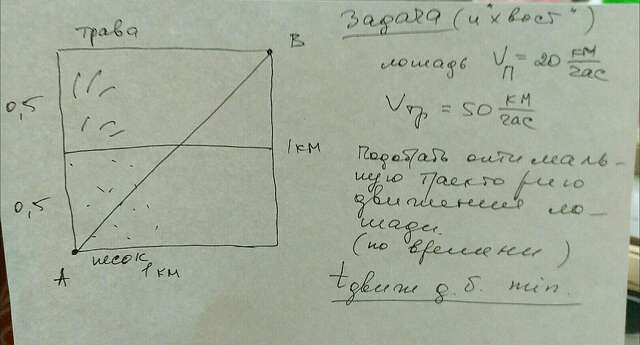 трава
B
0,5
1 км
0,5
A
песок
1 км
Задача (и "хвост")
лошадь Vп = 20 км/час
Vтр = 50 км/час
Подобрать оптималь-
ную траекторию
движения ло-
шади.
(по времени)
tдвиж д.б. min.